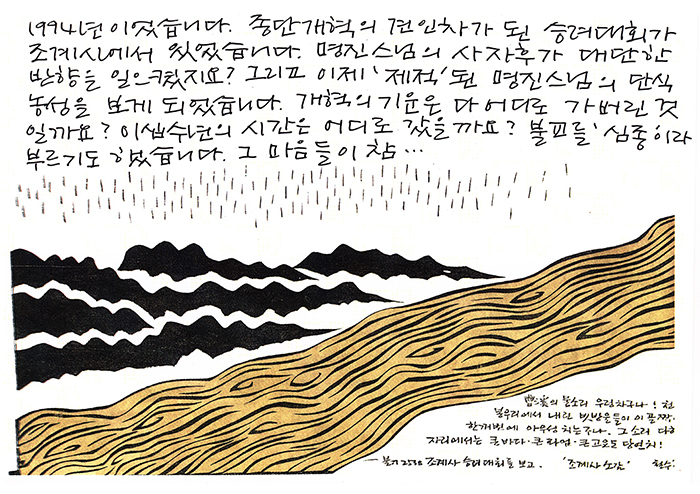 1994년이었습니다. 종단개혁의 견인차가 된 승려대회가
조계사에서 있었습니다. 명진스님의 사자후가 대단한
반향을 일으켰지요? 그리고 이제 '제적'된 명진스님의 단식
농성을 보게 되었습니다. 개혁의 기운은 다 어디로 가버린 것
일까요? 이십수년의 시간은 어디로 갔을까요? 불교를 '심종'이라
부르기도 했습니다. 그 마음들이 참…
물소리 우렁차구나! 천
봉우리에서 내린 빗방울들이 이 골짝,
한계곡에 아우성치는구나. 그 소리 다한
자리에서는 큰바다·큰라업·큰고요도 당연치!
— 불기 2538 조계사 승려대회를 보고. '조계사 소감' 철수.